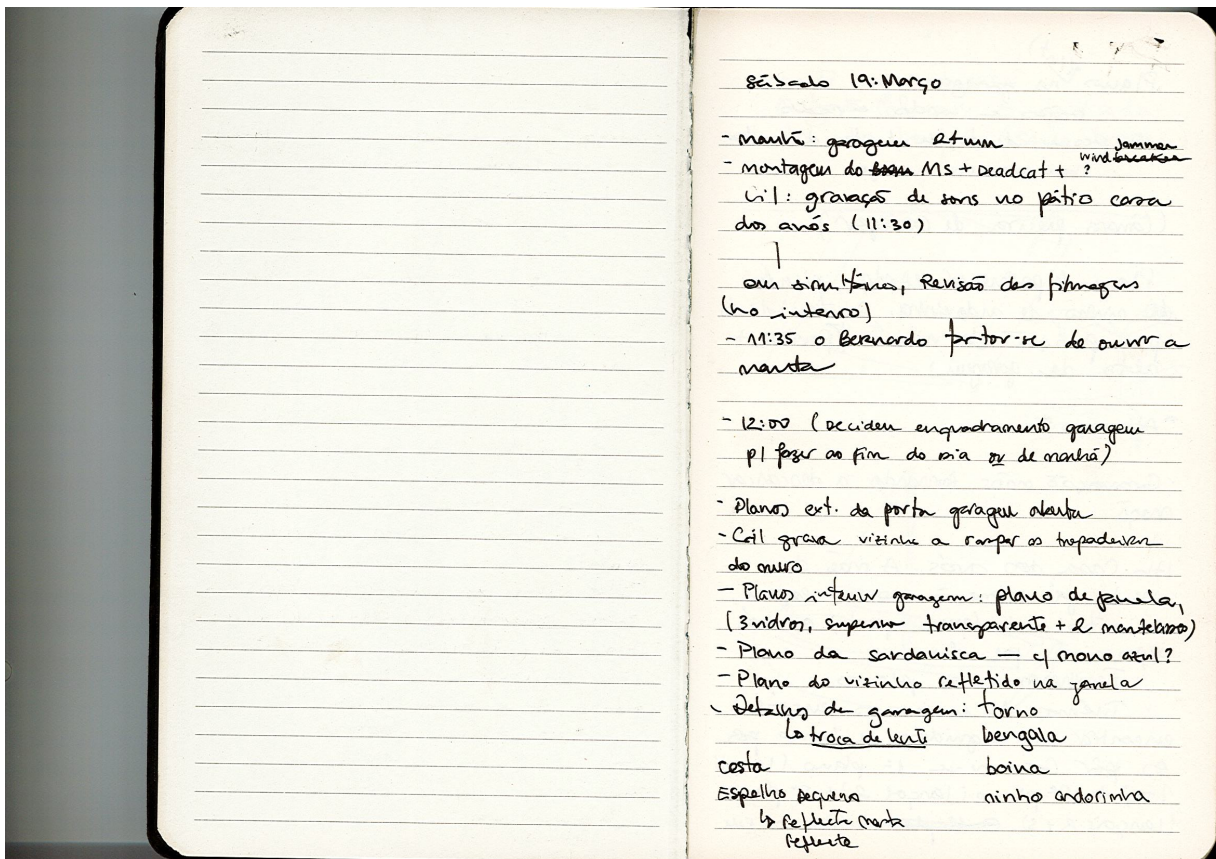 sábado 19: Março
- manhã: garagem
jammer
- montagem do MS + Deadcat + wind breaker
?
Gil: gravação de sons no pátio casa
dos avós (11:30)
em simultâneo, Revisão das filmagens
(no interno)
- 11:35 o Bernardo fartou-se de ouvir a
manta
- 12:00 (Decidem enquadramento garagem
p/ fazer ao fim do dia ou de manhã)
- Planos ext. da porta garagem aberta
- Gil grava vizinho a raspar as trepadeiras
do muro
- Planos interior garagem: plano de janela,
(3 vidros, superior transparente + 2
- Plano da sardanisca — c/ mono azul?
- Plano do vizinho refletido na janela
- Detalhes da garagem: torno
↳ troca de lente bengala
cesta boina
Espelho pequeno ninho andorinha
↳ reflecte
reflecte